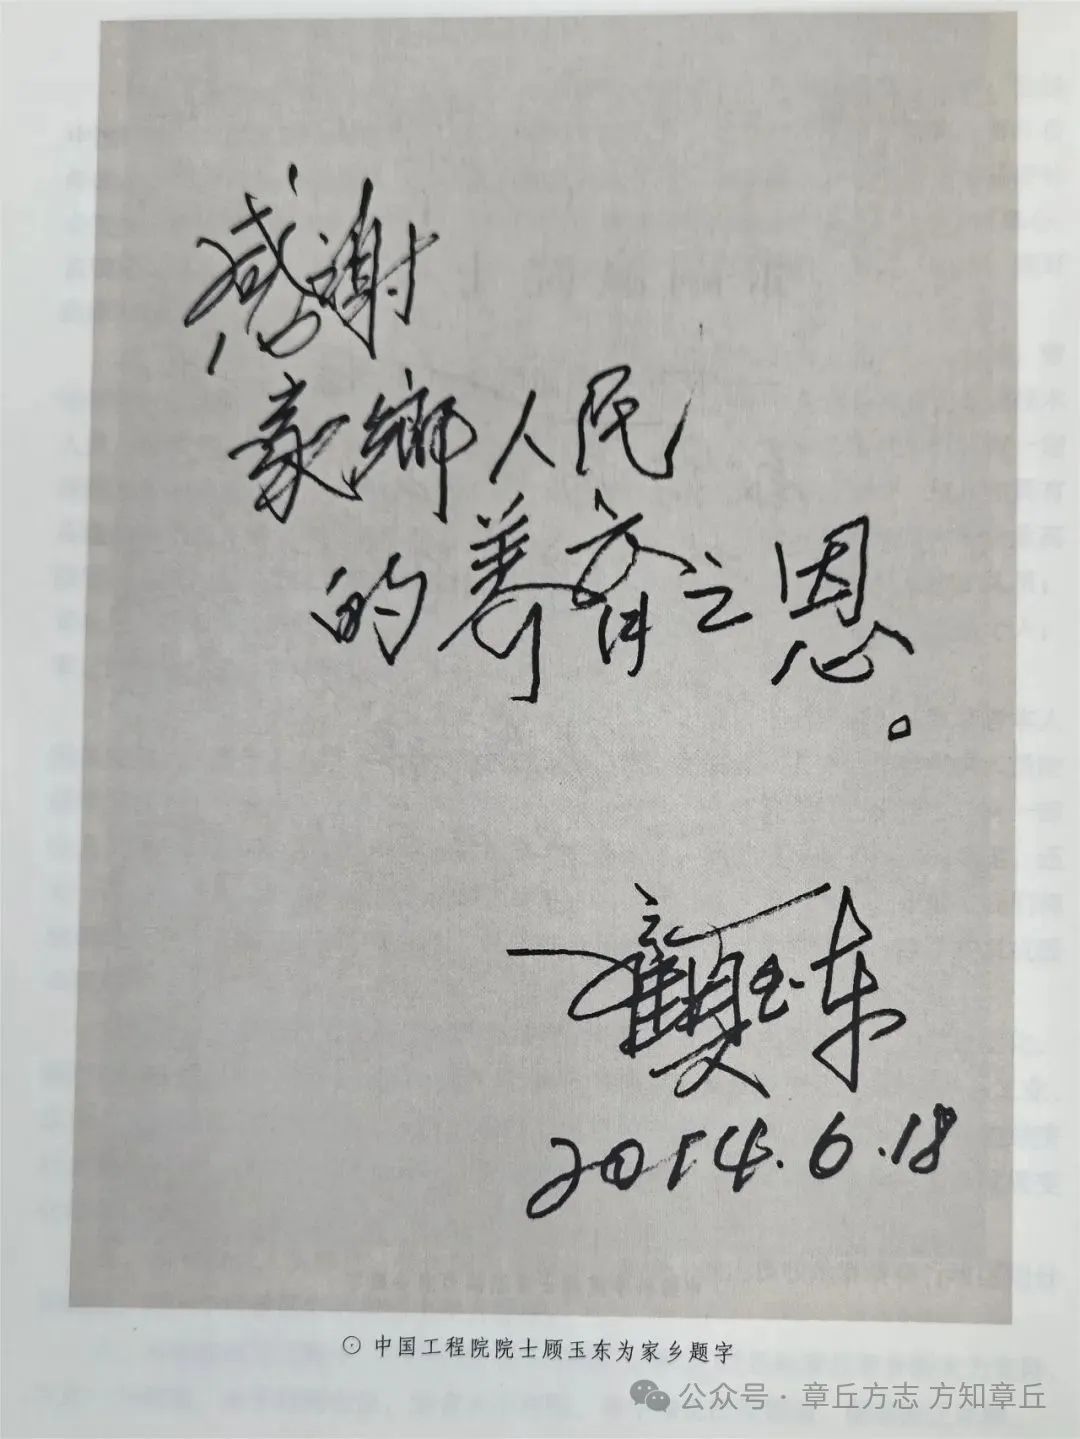 感謝
家鄉人民
的养育之恩。
顾玉东
2014.6.18
⊙ 中国工程院院士顾玉东为家乡题字
公众号 · 章丘方志 方知章丘